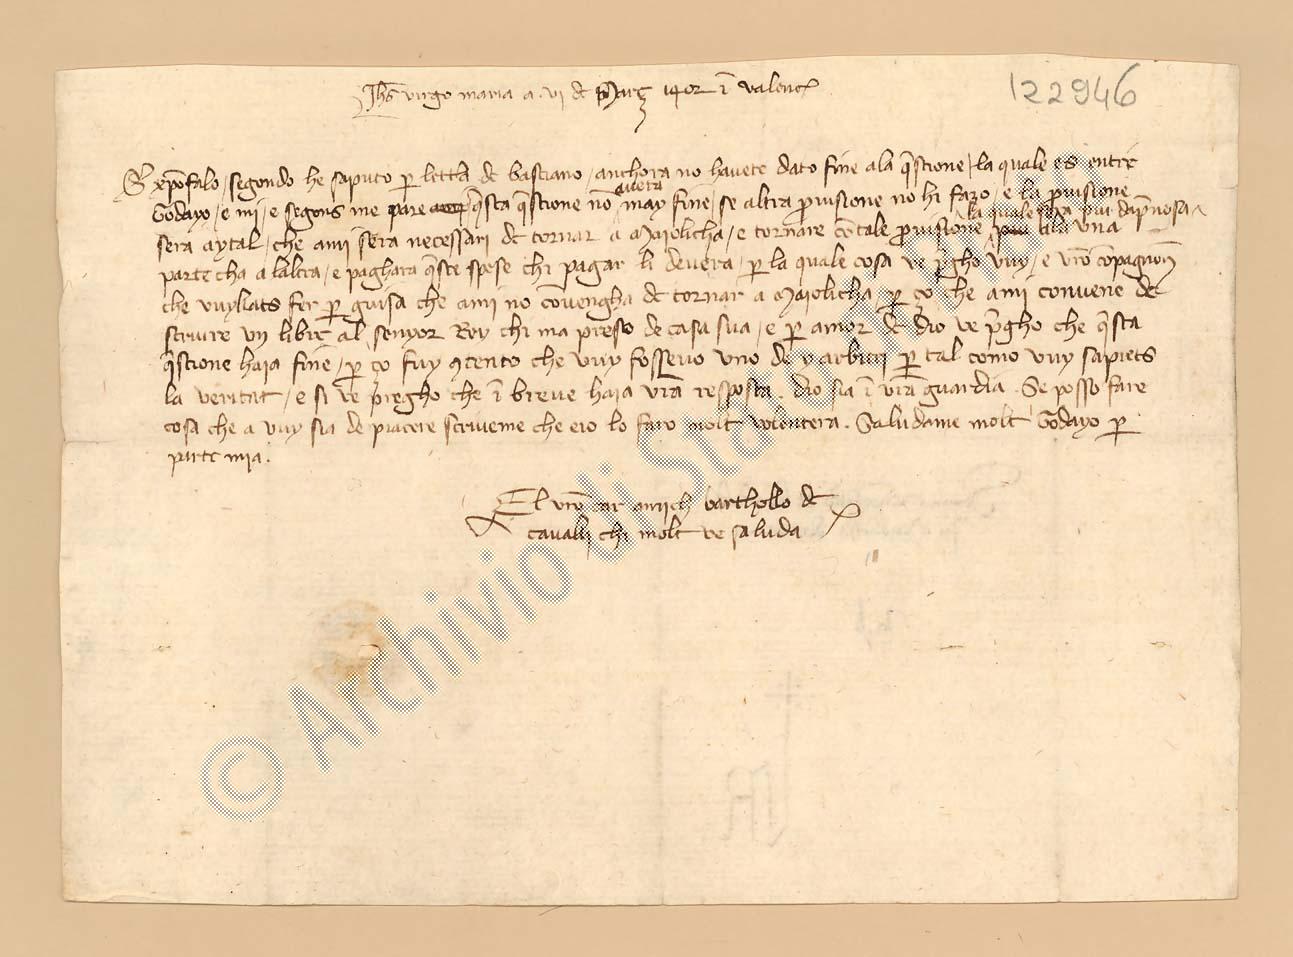 Jhs virgo maria a vi de Març 1402 i valenc
122946
Sr xpofalo / segondo he saputo per lettera de basciano / anchora no havete dato fine ala qstione / la quale es entre
Godayo / e mi / e segons me pare qsta qstione no avera may fine / se altra provisione no hi fazo / e la provisione
sera aytal / che ami sera necessari de tornar a Maiolicha / e tornare co tale provisione la quale sera piu dapnosa
ala una
parte cha a laltra / e pagharà qste spese chi pagar li devera / per la quale cosa ve pgho vuy / e vro copagnon
che vuyllats fer per guisa che ami no covengha de tornar a Maiolicha / per ço che ami convene de
scrivire un libre al senyor Rey chi ma presso de casa sua / e per amor de dio ve pgho che qsta
qstione haia fine / per ço fuy contento che vuy fossevo uno de y arbitri per tal como vuy sapiets
la veritat / e si ve pregho che i breve haia vra resposta . dio sia i vra guardia . Se posso fare
cosa che a vuy sia de piacere scriveme che eio lo faro molt volentera . Saludame molt Godayo per
parte mia .
El vro car amich barthollo de
cavalli chi molt ve saluda
© Archivio di Stato di